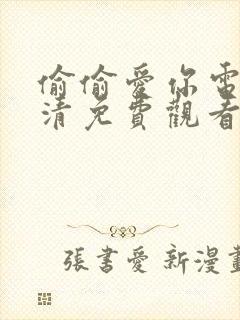 偷偷愛你電
清免費觀看
張書愛 新漫畫